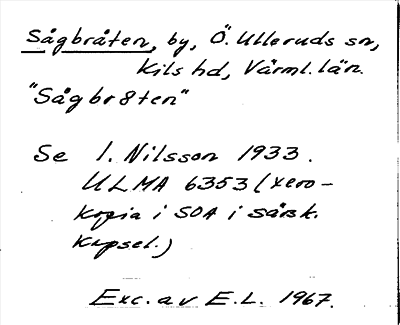 Sågbråten, by, Ö. Ulleruds sn,
Kils hd, Värml. län.
"Sågbr8ten"
Se I. Nilsson 1933.
ULMA 6353 (xero-
kopia i SOA i särsk.
kapsel.)
Exc. av E.L. 1967.